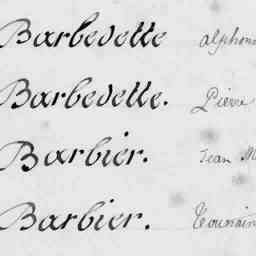 Barbedette Alphons
Barbedette. Pierre
Barbier. Jean M
Barbier. Toussain